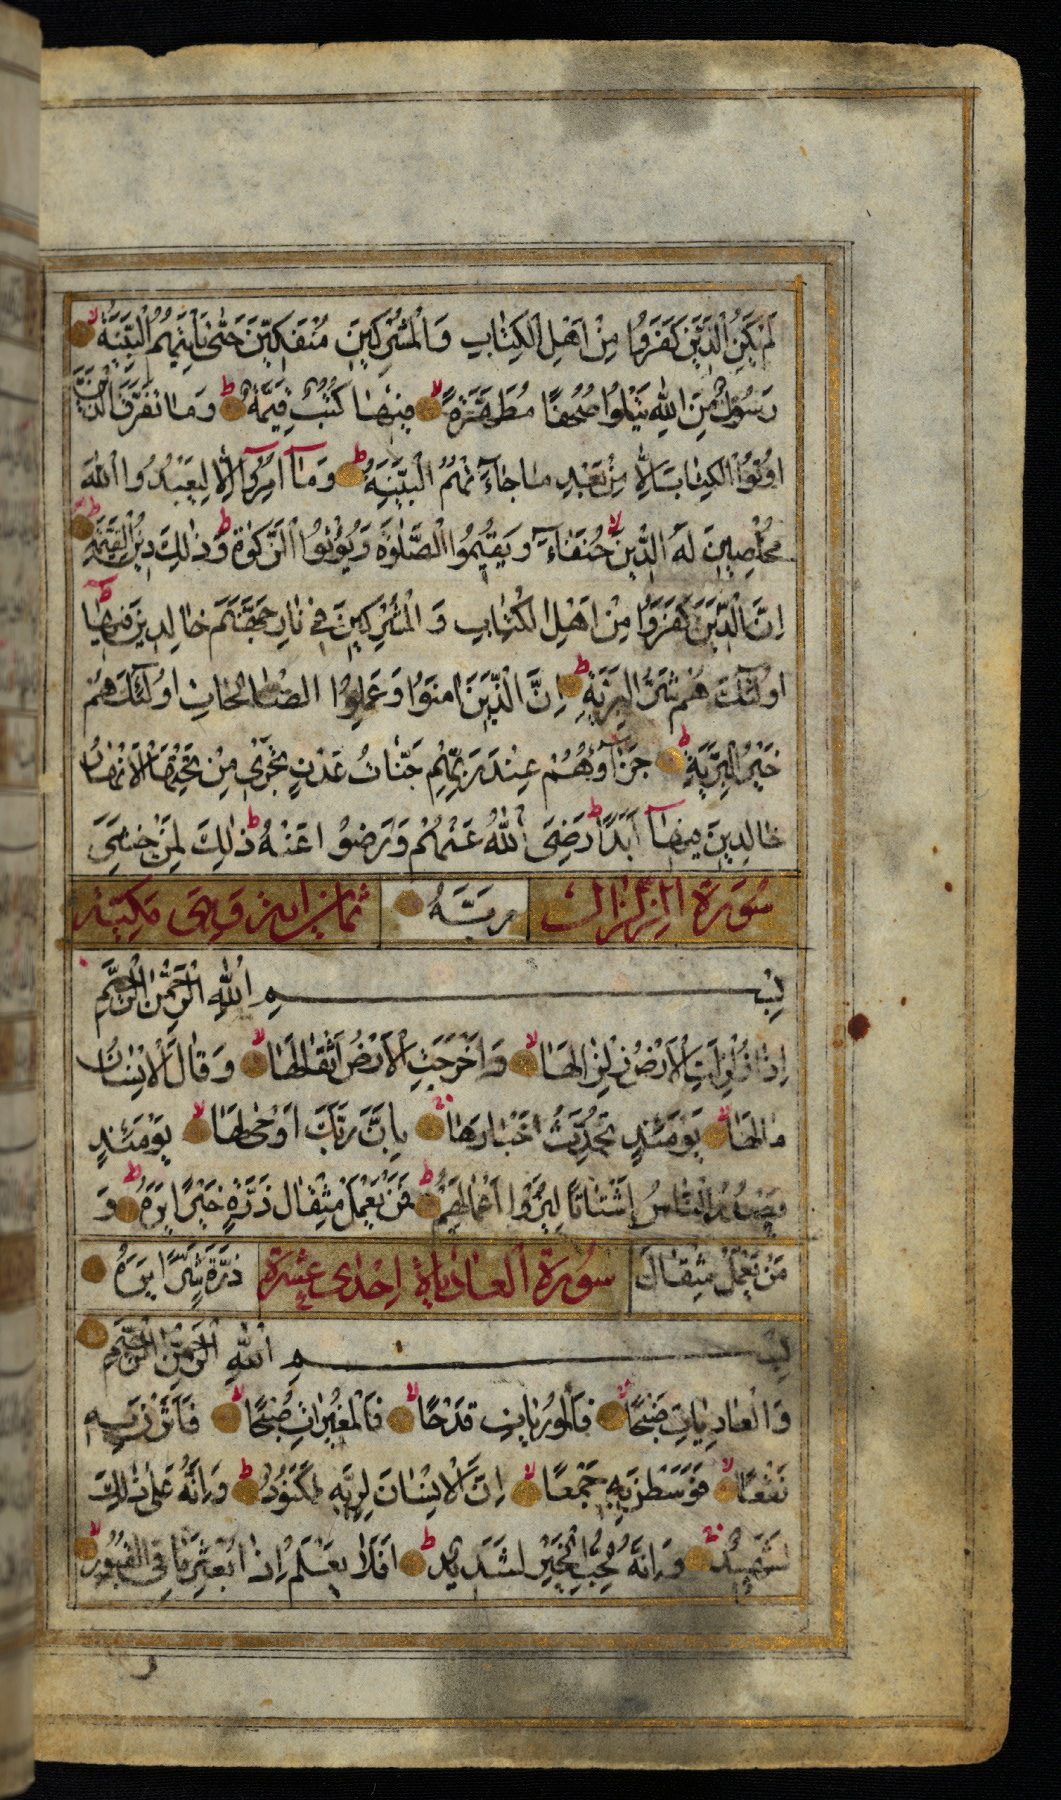 لَمْ يَكُنِ الَّذِينَ كَفَرُوا مِنْ اَهْلِ الْكِتَابِ وَالْمُشْرِكِينَ مُنْفَكِّينَ حَتّٰى تَأْتِيَهُمُ الْبَيِّنَةُ
رَسُولٌ مِنَ اللّٰهِ يَتْلُوا صُحُفًا مُطَهَّرَةً فِيهَا كُتُبٌ قَيِّمَةٌ وَمَا تَفَرَّقَ الَّذِينَ
اُوتُوا الْكِتَابَ اِلَّا مِنْ بَعْدِ مَا جَاءَتْهُمُ الْبَيِّنَةُ وَمَا اُمِرُوا اِلَّا لِيَعْبُدُوا اللّٰهَ
مُخْلِصِينَ لَهُ الدِّينَ حُنَفَاءَ وَيُقِيمُوا الصَّلٰوةَ وَيُؤْتُوا الزَّكٰوةَ وَذٰلِكَ دِينُ الْقَيِّمَةِ
اِنَّ الَّذِينَ كَفَرُوا مِنْ اَهْلِ الْكِتَابِ وَالْمُشْرِكِينَ فِي نَارِ جَهَنَّمَ خَالِدِينَ فِيهَا
اُولٰئِكَ هُمْ شَرُّ الْبَرِيَّةِ اِنَّ الَّذِينَ اٰمَنُوا وَعَمِلُوا الصَّالِحَاتِ اُولٰئِكَ هُمْ
خَيْرُ الْبَرِيَّةِ جَزَاؤُهُمْ عِنْدَ رَبِّهِمْ جَنَّاتُ عَدْنٍ تَجْرِي مِنْ تَحْتِهَا الْاَنْهَارُ
خَالِدِينَ فِيهَا اَبَدًا رَضِيَ اللّٰهُ عَنْهُمْ وَرَضُوا عَنْهُ ذٰلِكَ لِمَنْ خَشِيَ
سُورَة الزلزال رَبَّهُ ثمان اية وهى مكية
بِسْمِ اللّٰهِ الرَّحْمٰنِ الرَّحِيمِ
اِذَا زُلْزِلَتِ الْاَرْضُ زِلْزَالَهَا وَاَخْرَجَتِ الْاَرْضُ اَثْقَالَهَا وَقَالَ الْاِنْسَانُ
مَا لَهَا يَوْمَئِذٍ تُحَدِّثُ اَخْبَارَهَا بِاَنَّ رَبَّكَ اَوْحٰى لَهَا يَوْمَئِذٍ
يَصْدُرُ النَّاسُ اَشْتَاتًا لِيُرَوْا اَعْمَالَهُمْ فَمَنْ يَعْمَلْ مِثْقَالَ ذَرَّةٍ خَيْرًا يَرَهُ وَ
مَنْ يَعْمَلْ مِثْقَالَ سُورَة الْعَادِيَاة اِحْدٰى عَشْرَة ذَرَّةٍ شَرًّا يَرَهُ
بِسْمِ اللّٰهِ الرَّحْمٰنِ الرَّحِيمِ
وَالْعَادِيَاتِ ضَبْحًا فَالْمُورِيَاتِ قَدْحًا فَالْمُغِيرَاتِ صُبْحًا فَاَثَرْنَ بِهِ
نَقْعًا فَوَسَطْنَ بِهِ جَمْعًا اِنَّ الْاِنْسَانَ لِرَبِّهِ لَكَنُودٌ وَاِنَّهُ عَلٰى ذٰلِكَ
لَشَهِيدٌ وَاِنَّهُ لِحُبِّ الْخَيْرِ لَشَدِيدٌ اَفَلَا يَعْلَمُ اِذَا بُعْثِرَ مَا فِي الْقُبُورِ